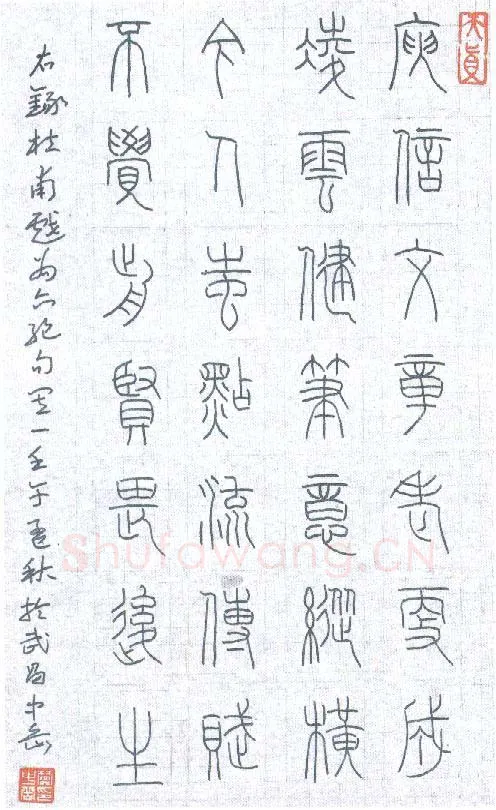 庾信文章老更成
凌雲健筆意縱橫
今人蚩點流傳賦
不覺前賢畏後生
右錄杜甫戲為六絕句其一壬午孟秋於武昌中岳
Shufawang.CN